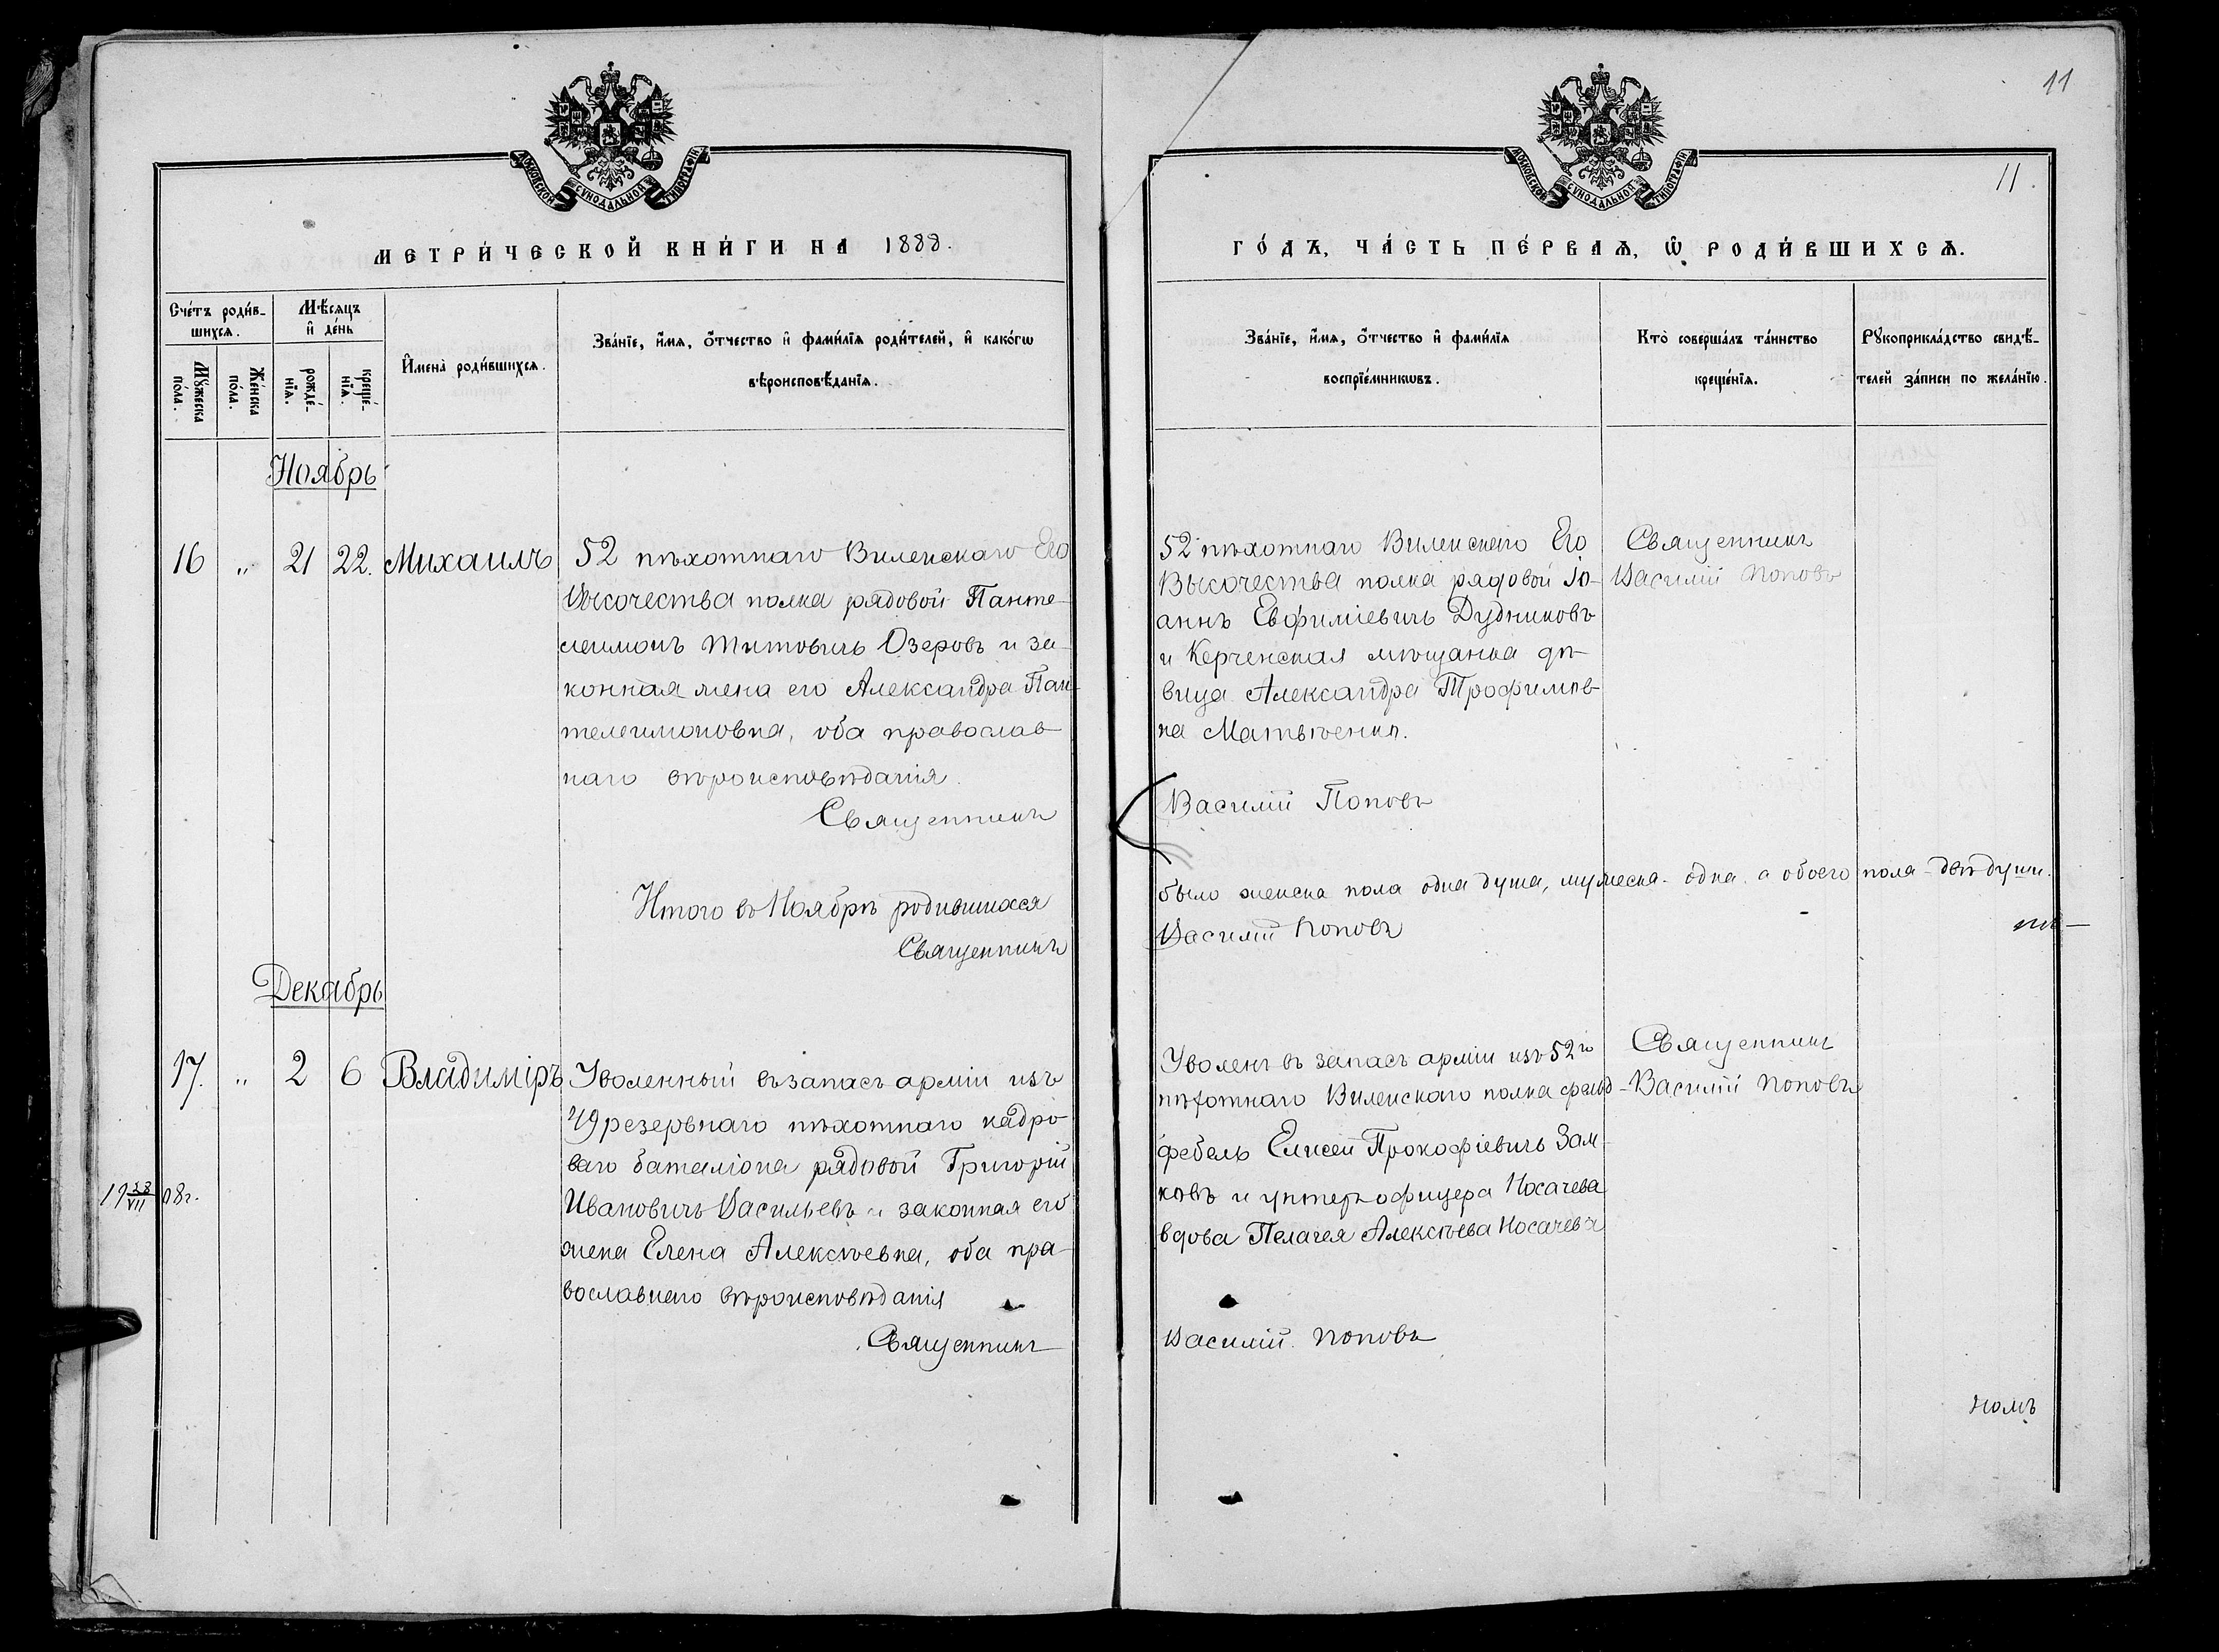 11
МОСКОВСКОЙ СѴНОДАЛЬНОЙ ТИПОГРАФІИ
МОСКОВСКОЙ СѴНОДАЛЬНОЙ ТИПОГРАФІИ
11.
МЕТРИ́ЧЕСКОЙ КНИ́ГИ НА 1888.
ГО́ДЪ, ЧА́СТЬ ПЕ́РВАѦ, Ѡ҆ РОДИ́ВШИХСѦ.
Сче́тъ роди́в-
шихсѧ.
Мꙋ́жеска
по́ла.
Же́нска
по́ла.
Мѣ́сяцъ
и҆ де́нь
рожде́-
нїѧ.
креще́-
нїѧ.
И҆мена̀ роди́вшихсѧ.
Зва́нїе, и҆́мѧ, ѻ҆́тчество и҆ фами́лїѧ роди́телей, и҆ како́гѡ
вѣроисповѣ́данїѧ.
Зва́нїе, и҆́мѧ, ѻ҆́тчество и҆ фами́лїѧ
воспрїе́мникѡвъ.
Кто̀ соверша́лъ та́инство
креще́нїѧ.
Рꙋкоприкла́дство свидѣ́-
телей за́писи по жела́нїю.
Ноябрь
16 " 21 22. Михаилъ
52 пѣхотнаго Виленскаго Его
Высочества полка рядовой Панте-
леимонъ Титовичъ Озеровъ и за-
конная жена его Александра Пан-
телеимоновна, оба православ-
наго вѣроисповѣданія.
Священникъ
52 пѣхотнаго Виленскаго Его
Высочества полка рядовой Іо-
аннъ Евфиміевичъ Дудниковъ
и Керченская мѣщанка дѣ-
вица Александра Трофимов-
на Матвѣенко.
Василій Поповъ
Священникъ
Василій Поповъ
Итого въ Ноябрѣ родившихся
Священникъ
было женска пола одна душа, мужеска - одна, а обоего пола - двѣ души.
Василій Поповъ
Декабрь
17. " 2 6 Владиміръ
Уволенный въ запасъ арміи изъ
49 резервнаго пѣхотнаго кадро-
ваго баталіона рядовой Григорій
Ивановичъ Васильевъ и законная его
жена Елена Алексѣевна, оба пра-
вославнаго вѣроисповѣданія
Священникъ
19 23/VII 08г.
Уволен въ запасъ арміи изъ 52го
пѣхотнаго Виленскаго полка фельд-
фебель Елисей Прокофіевичъ Зам-
ковъ и унтеръ офицера Носачева
вдова Пелагея Алексѣева Носачева
Василій Поповъ
Священникъ
Василій Поповъ
номъ